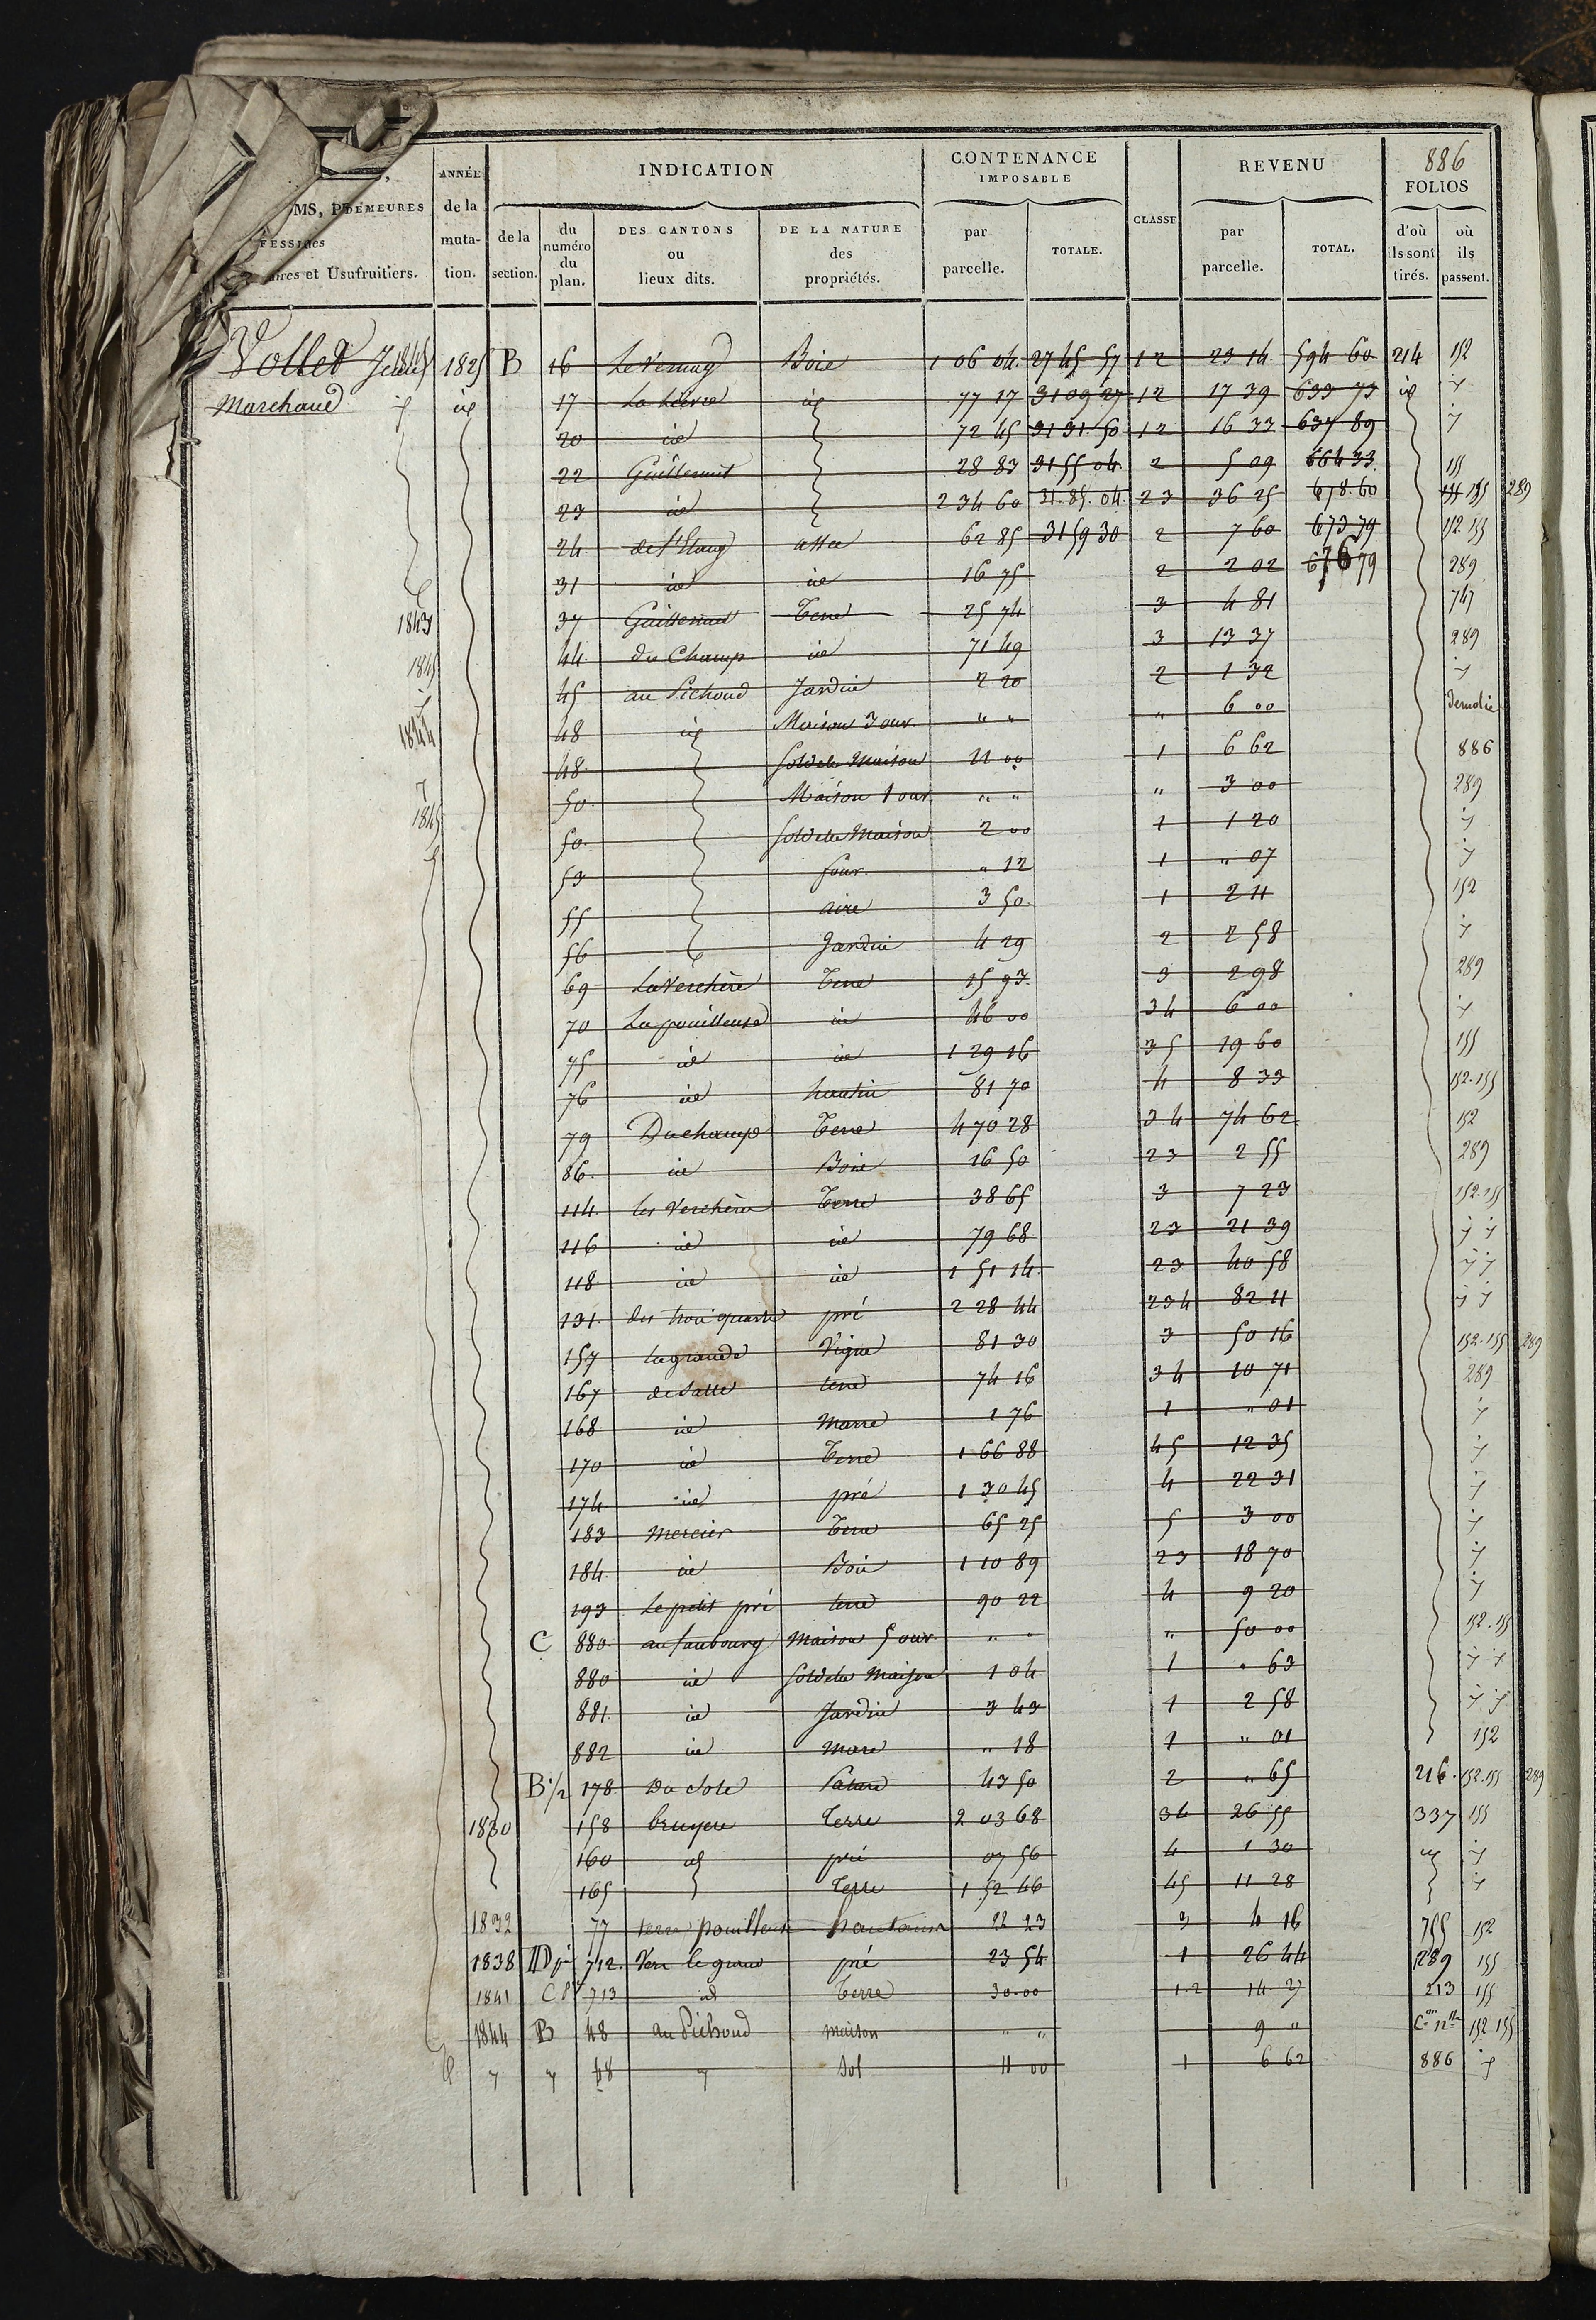 886
MS, P DEMEURES
FESSI des
aires et Usufruitiers.
ANNÉE de la muta- tion.
INDICATION
de la section.
du numéro du plan.
DES CANTONS ou lieux dits.
DE LA NATURE des propriétés.
CONTENANCE IMPOSABLE
par parcelle.
TOTALE.
CLASSE
REVENU
par parcelle.
TOTAL.
FOLIOS
d'où ils sont tirés.
où ils passent.
1845 1825 B 16 Le Vernay Bois 1 06 04 2745 57 12 23 14 594 60 214 152
Marchand id 17 id 77 17 3109 27 12 17 39 633 73 id
20 id 72 45 3131 50 12 16 33 637 89
22 28 83 3155 04 2 5 09 664 33 155
23 id 2 34 60 31.85.04 23 36 25 678.60 155 289
24 de l'Etang 62 85 3159 30 2 7 60 673 79 152.155
31 id id 16 75 2 2 02 676 79 289
1843 37 Terre 25 74 3 4 81 747
1845 44 du Champ id 71 49 3 13 37 289
45 au Pichoud Jardin 2 20 2 1 32
1844 48 id Maison 3 our. " " " 6 00 Demolie
48 Sol de la Maison 11 00 1 6 62 886
50 Maison 1 our. " " " 3 00 289
1845 50 Sol de la Maison 2 00 1 1 20
53 four " 12 1 " 07
55 aire 3 50 1 2 11 152
56 Jardin 4 29 2 2 58
69 La Verchère Terre 15 93 3 2 98 289
70 La pouilleuse id 46 00 34 6 00
75 id id 1 29 16 35 19 60 155
76 id hautin 81 70 4 8 33 152.155
79 Du champ Terre 4 70 28 34 74 62 152
86 id Bois 16 50 23 2 55 289
114 les Verchères Terre 38 65 3 7 23 152.155
116 id id 79 68 23 21 39
118 id id 1 51 14 23 40 58
131 des trois quarts pré 2 28 44 234 82 11
157 la grande Vigne 81 30 3 50 16 152.155 289
167 terre 74 16 34 10 71 289
168 id Marre 1 76 1 " 01
170 id Terre 1 66 88 45 12 35
174 id pré 1 30 45 4 22 31
183 Mercier Terre 65 25 5 3 00
184 id Bois 1 10 89 23 18 70
193 Le petit pré terre 90 22 4 9 20
C 880 au faubourg Maison 5 our. " " " 50 00 152.155
880 id Sol de la Maison 1 04 1 " 63
881 id Jardin 3 43 1 2 58
882 id Mare " 18 1 " 01 152
B 1/2 178 43 50 2 " 65 216 152.155 289
1830 158 bruyere Terre 2 03 68 34 26 55 337 155
160 id pré 07 56 4 1 30 id
165 Terre 1 52 46 45 11 28
1832 77 terre pouilleuse 22 23 3 4 16 755 152
1838 712 pré 23 54 1 26 44 289 155
1841 713 id Terre 30.00 1.2 14 27 213 155
1844 B 48 au Pichoud maison " " 9 " 152 155
48 Sol 11 00 1 6 62 886